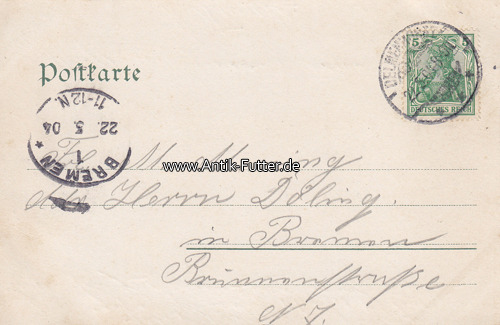 Postkarte
5 5
DEUTSCHES REICH
BREMEN
1
22. 5. 04
11-12.N.
www.Antik-Futter.de
Herrn Döling.
in Bremen
Brunnenstraße